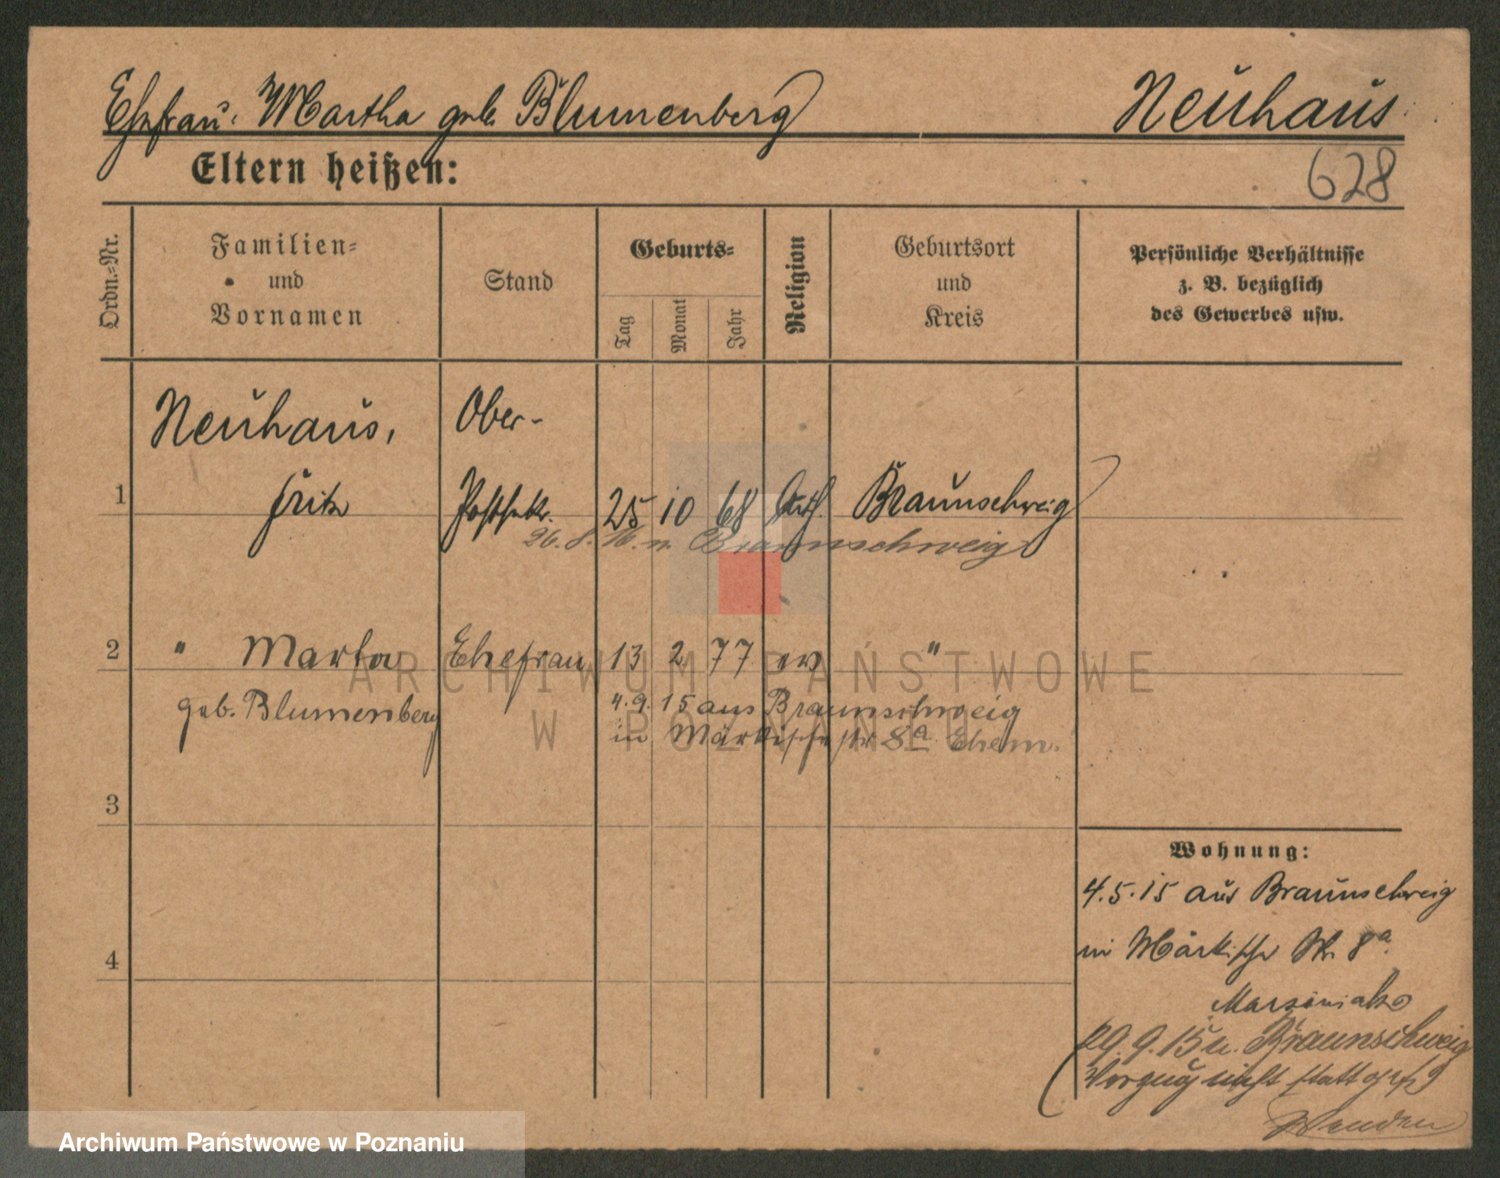 Ehefrau: Martha geb. Blumenberg Neuhaus
Eltern heißen: 628
Ordn.=Nr.
Familien=
und
Vornamen
Stand
Geburts=
Tag
Monat
Jahr
Religion
Geburtsort
und
Kreis
Persönliche Verhältnisse
z. B. bezüglich
des Gewerbes usw.
Neuhaus, Ober-
1 Fritz Postsekr. 25 10 68 Braunschweig
26. 8. 16. n. Braunschweig
2 " Marta Ehefrau 13 2 77 ev "
geb. Blumenberg 4. 9. 15 aus Braunschweig
in Märkischestr 8a Ehem.
3
4
Wohnung:
4. 5. 15 aus Braunschweig
in Märkische Str. 8a.
29. 9. 15 n. Braunschweig
(Vorzug nicht stattgef)
ARCHIWUM PAŃSTWOWE
W POZNANIU
Archiwum Państwowe w Poznaniu